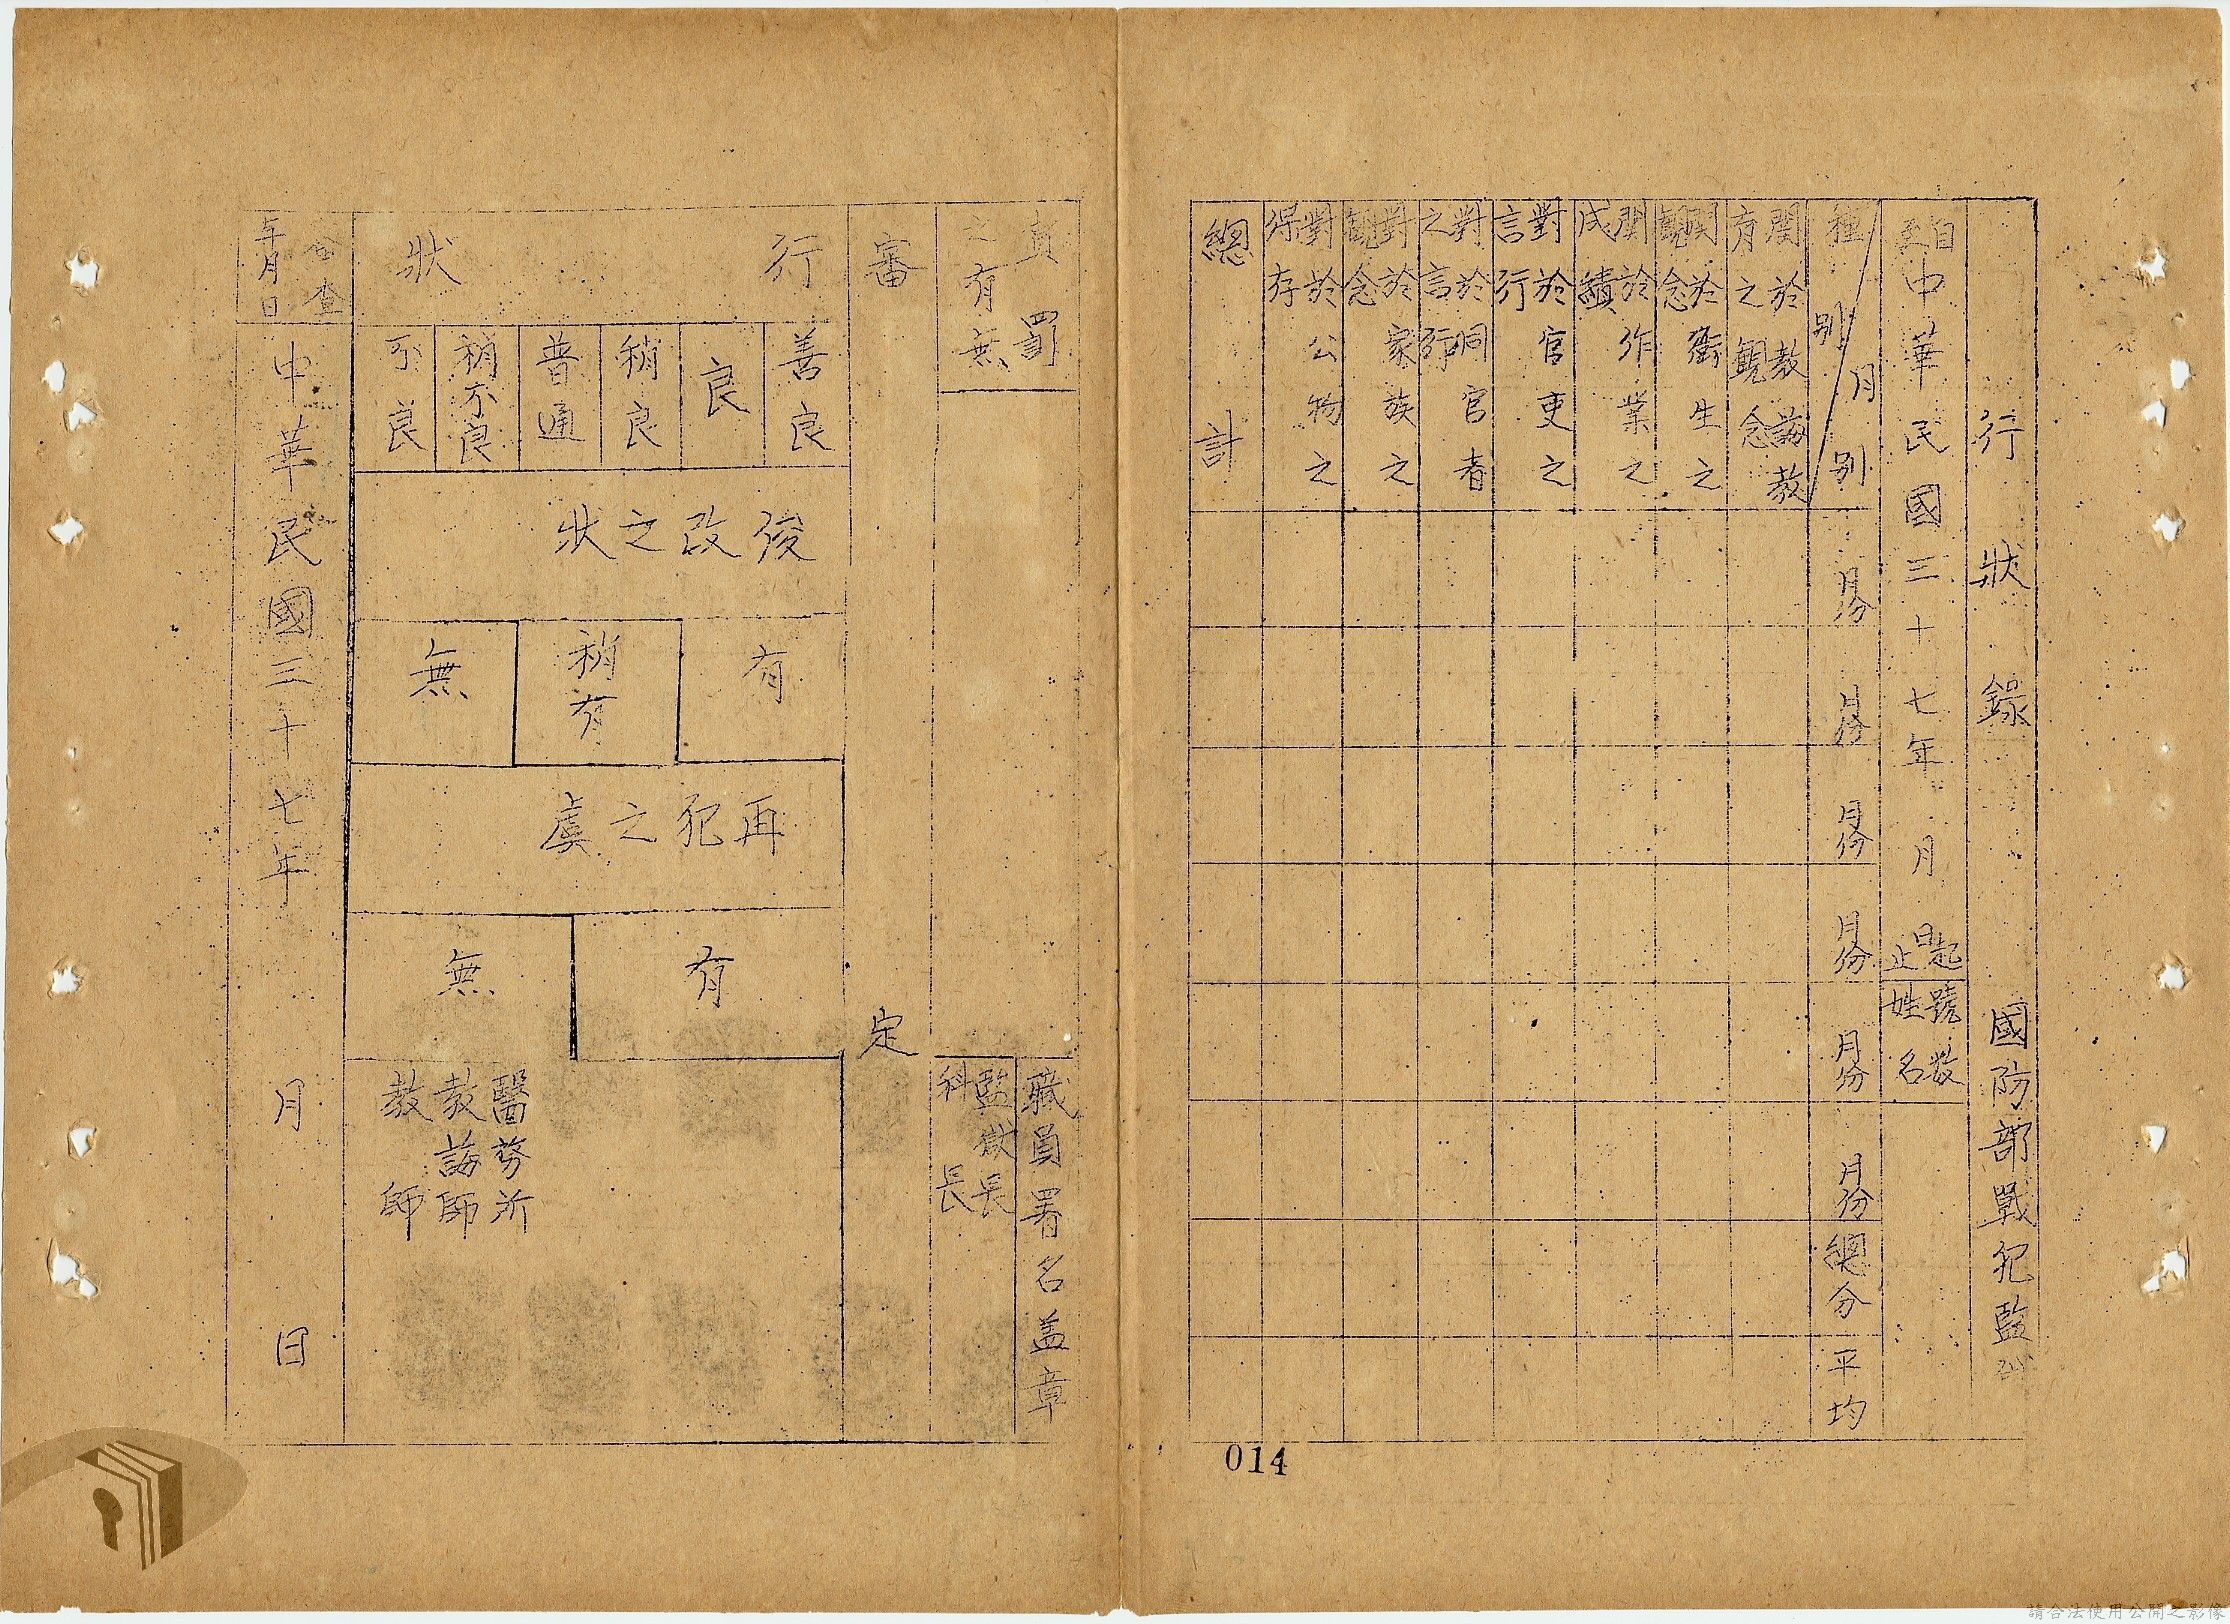 行狀錄 國防部戰犯監
自至中華民國三十七年 月 日起止
號數
姓名
種別 月別
月份
月份
月份
月份
月份
月份
總分
平均
關於教誨教
有之觀念
關於衛生之
觀念
關於作業之
成績
對於官吏之
言行
對於同官者
之言行
對於家族之
觀念
對於公物之
保存
總計
賞罰
之有無
職員署名蓋章
監獄長
科長
審定
行狀
善良
良
稍良
普通
稍不良
不良
悛改之狀
有
稍有
無
再犯之虞
有
無
醫務所
教誨師
教師
會查
年月日
中華民國三十七年 月 日
014
請合法使用公開之影像